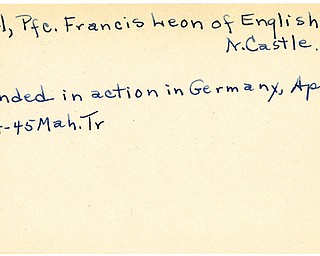 Pfc. Francis Leon of English
N. Castle.
in action in Germany, Ap
-45 Mah. Tr